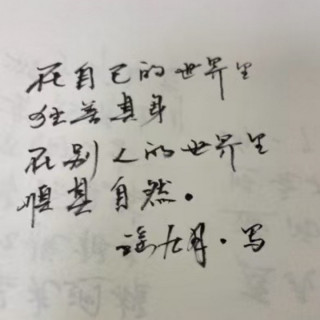 在自己的世界里
独善其身
在别人的世界里
顺其自然。
九月·写